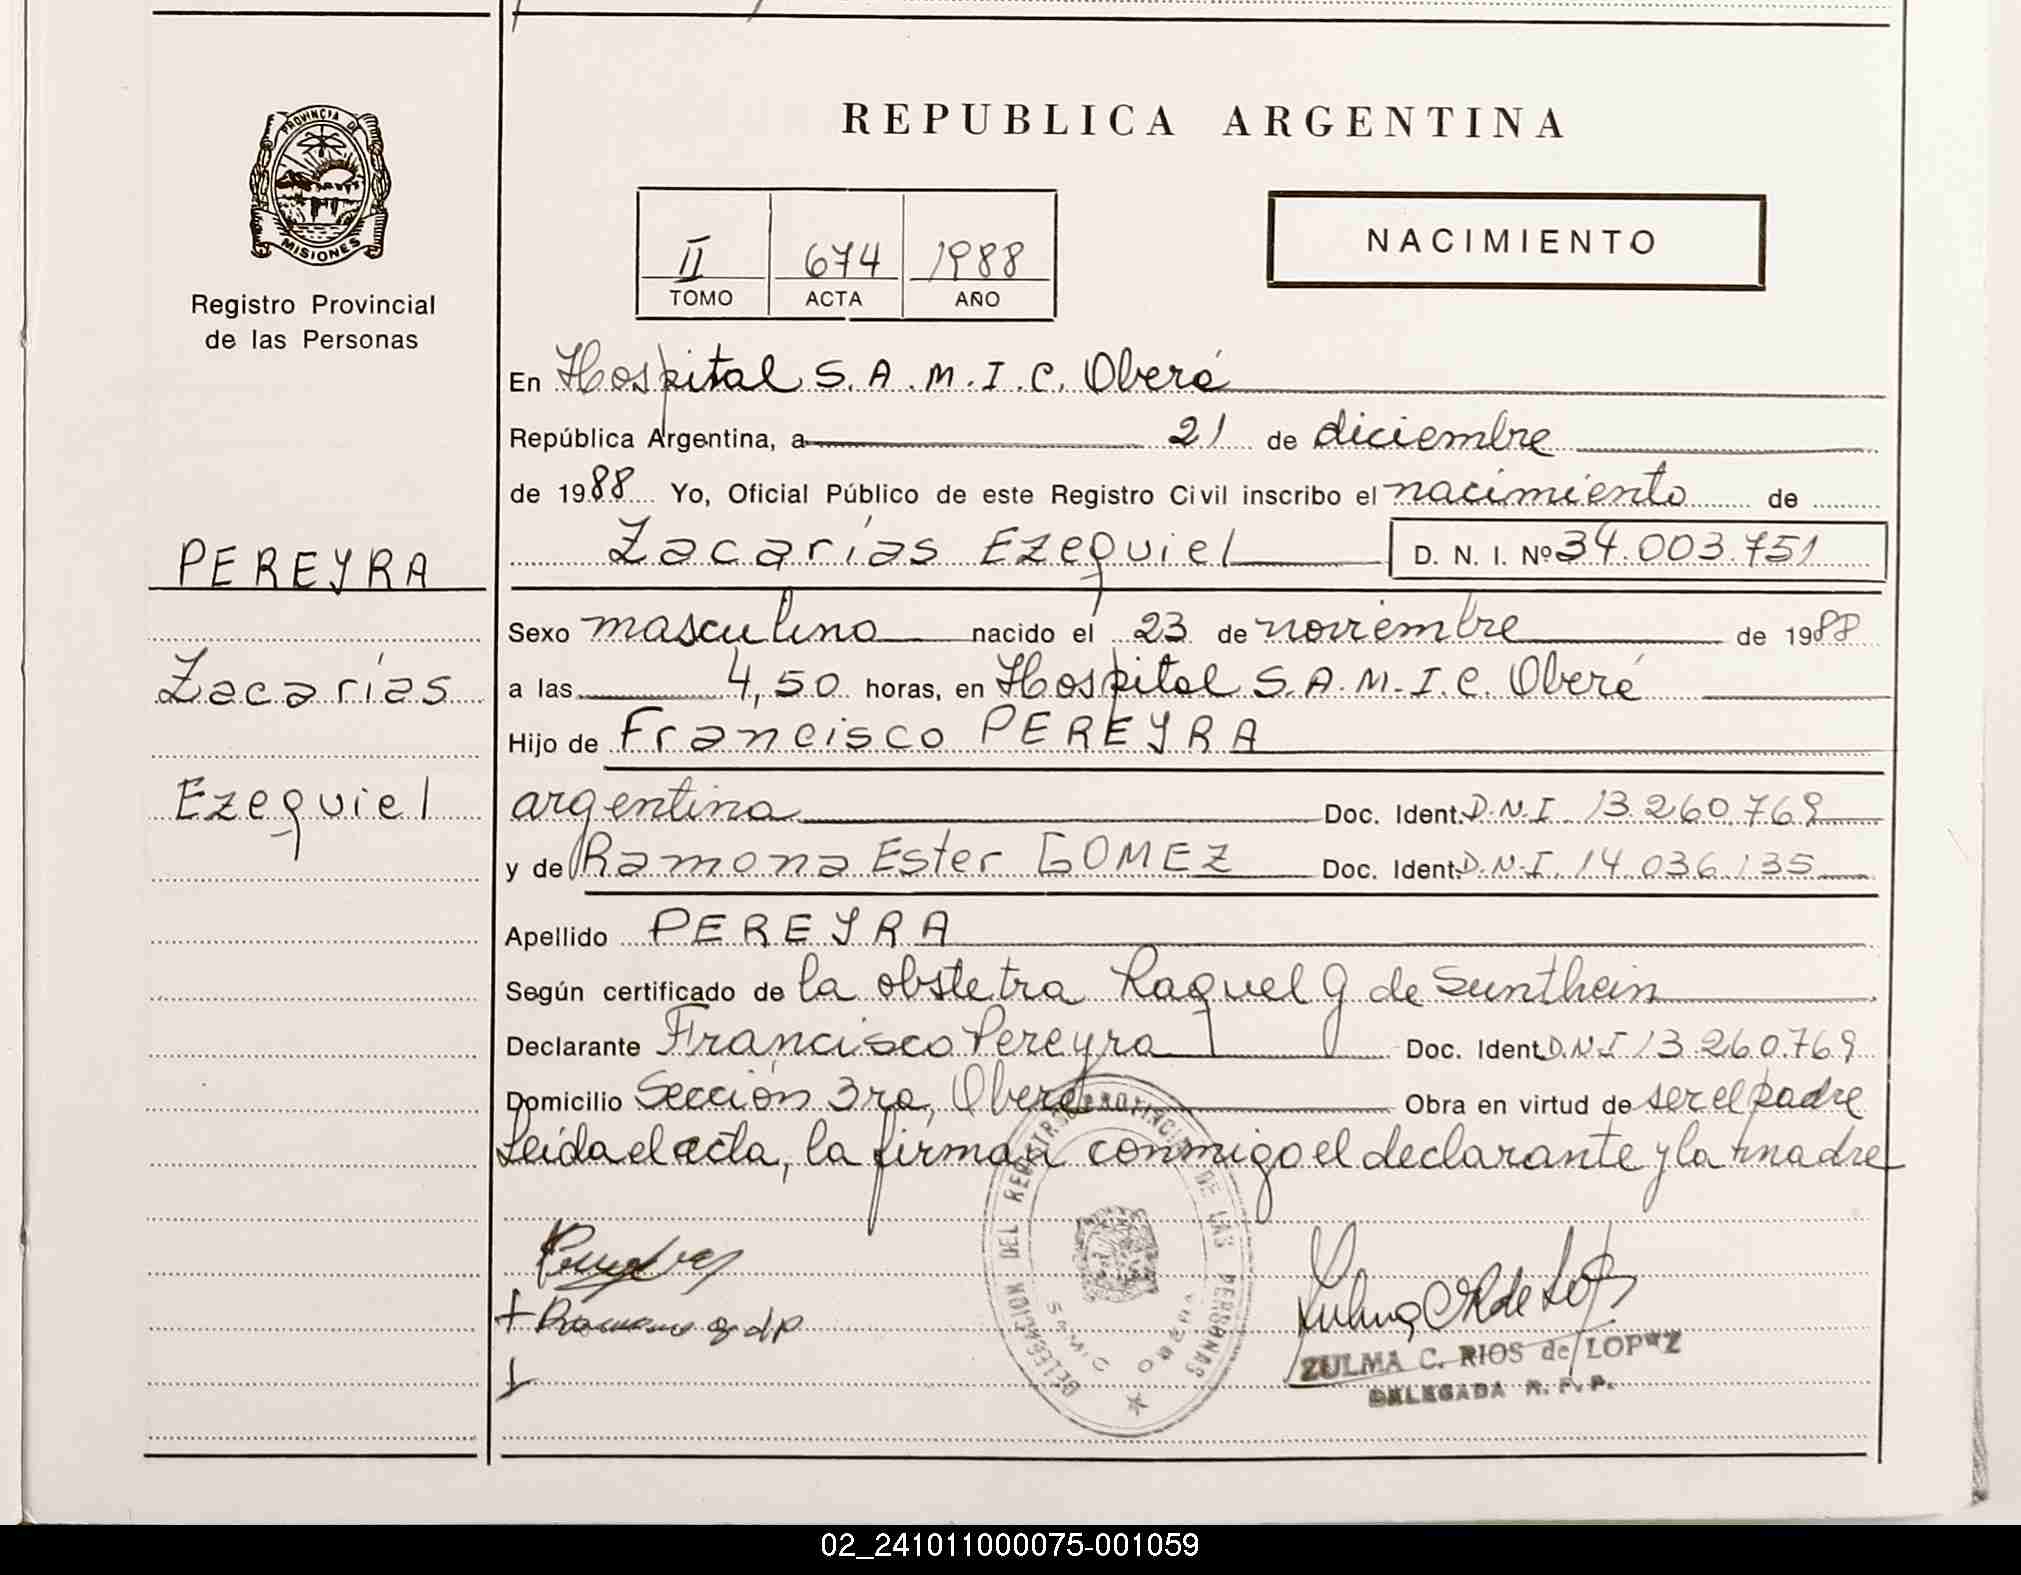 PROVINCIA DE
MISIONES
Registro Provincial
de las Personas
PEREYRA
Zacarías
Ezequiel
REPUBLICA ARGENTINA
II 674 1988
TOMO ACTA AÑO
NACIMIENTO
En Hospital S.A.M.I.C. Oberá
República Argentina, a 21 de diciembre
de 1988 Yo, Oficial Público de este Registro Civil inscribo el nacimiento de
Zacarías Ezequiel D. N. I. Nº 34.003.751
Sexo masculino nacido el 23 de noviembre de 1988
a las 4,50 horas, en Hospital S.A.M.I.C. Oberá
Hijo de Francisco PEREYRA
argentina Doc. Ident. D.N.I. 13.260.769
y de Ramona Ester GOMEZ Doc. Ident. D.N.I. 14.036.135
Apellido PEREYRA
Según certificado de la obstetra Raquel G de Sunthein
Declarante Francisco Pereyra Doc. Ident. D.N.I 13.260.769
Domicilio Sección 3ra, Oberá Obra en virtud de ser el padre
Leída el acta, la firman conmigo el declarante y la madre
DELEGACION DEL REGISTRO PROVINCIAL DE LAS PERSONAS
OBERA
ZULMA C. RIOS de LOPEZ
DELEGADA R. P. P.
02_241011000075-001059